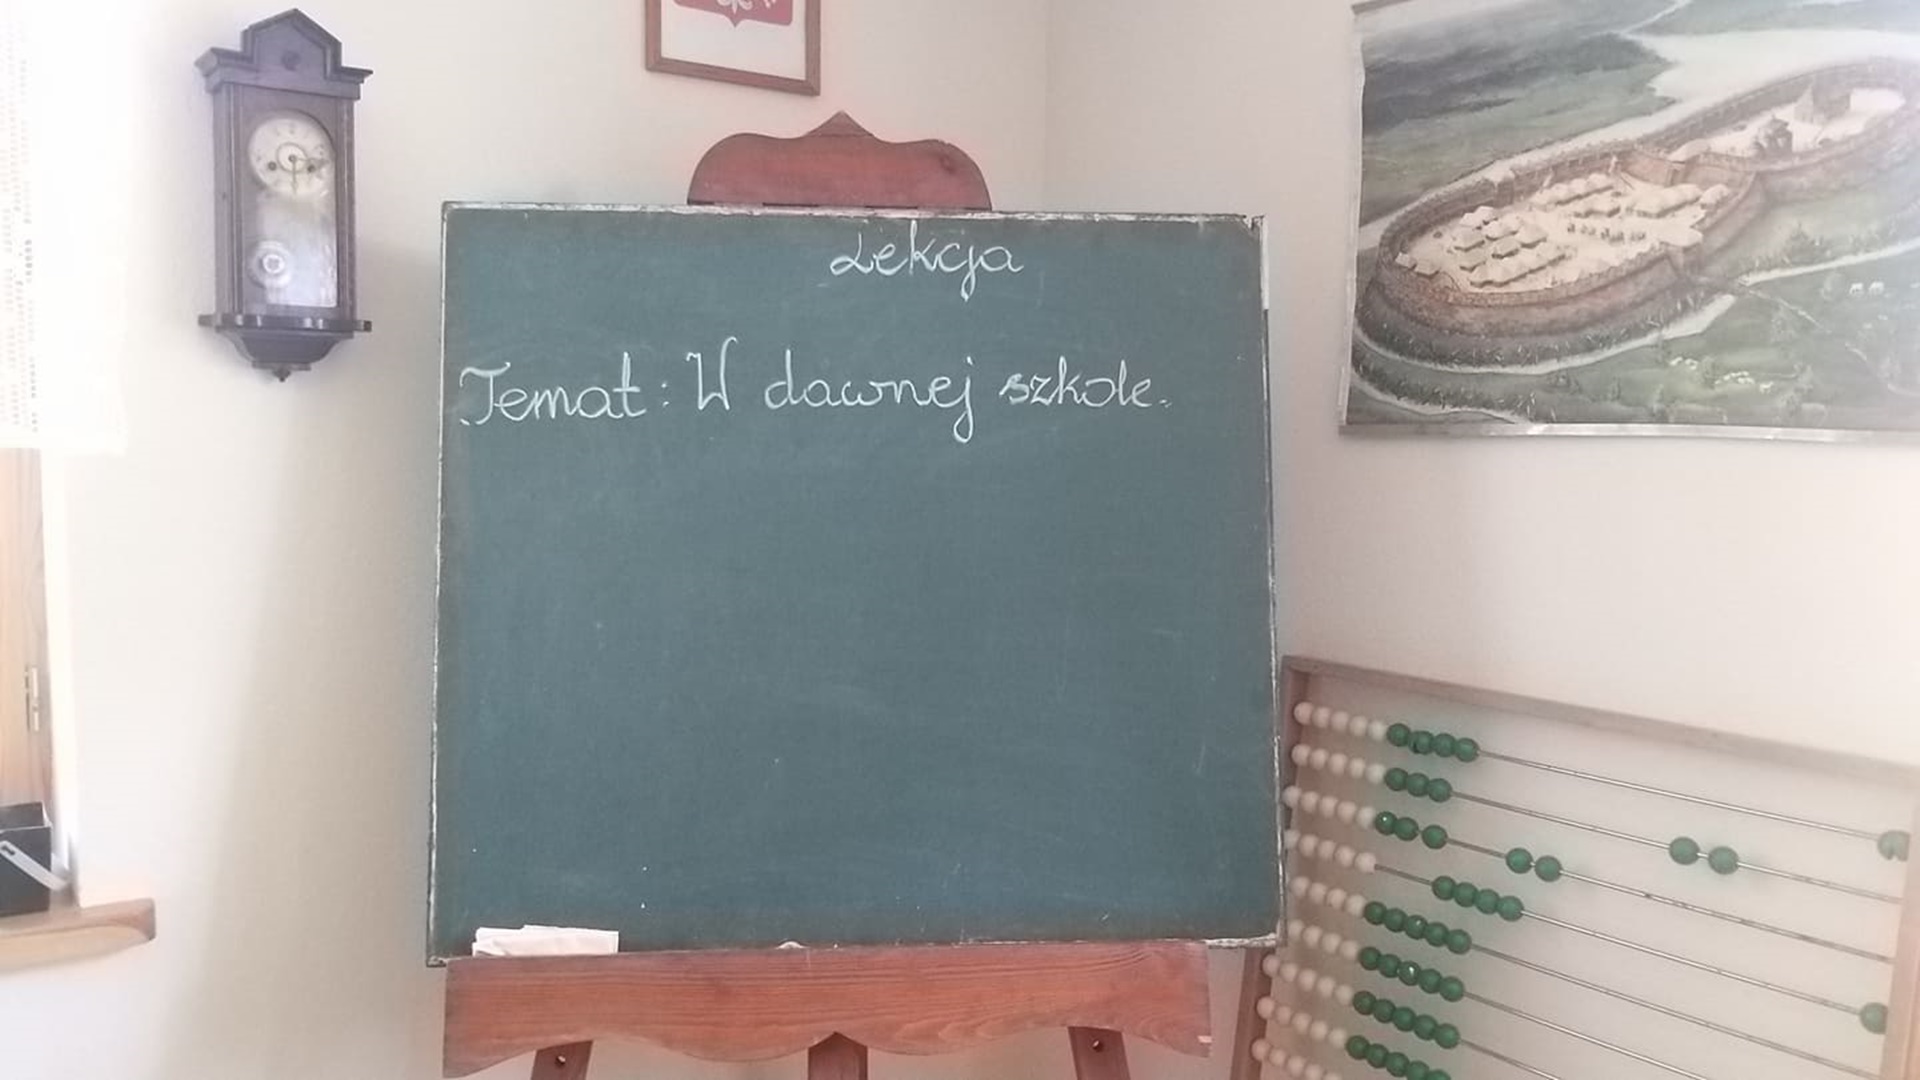 Lekcja
Temat: W dawnej szkole.